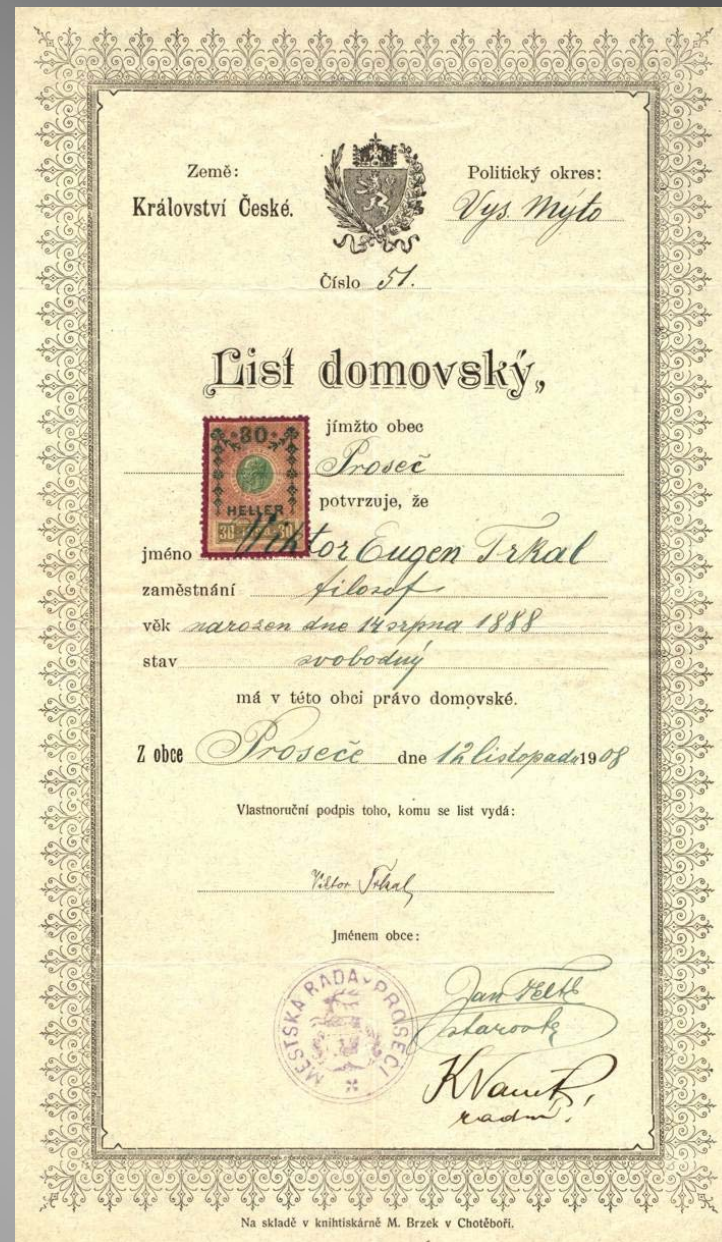 Země:
Království České.
Politický okres:
Vys. Mýto
Číslo 51.
List domovský,
jímžto obec
Proseč
potvrzuje, že
30
HELLER
30 30
jméno Viktor Eugen Trkal
zaměstnání filosof
věk narozen dne 14 srpna 1888
stav svobodný
má v této obci právo domovské.
Z obce Proseče dne 12 listopadu 1908
Vlastnoruční podpis toho, komu se list vydá:
Viktor Trkal
Jménem obce:
MĚSTSKÁ RADA V PROSEČI
Jan
starosta
radní.
Na skladě v knihtiskárně M. Brzek v Chotěboři.